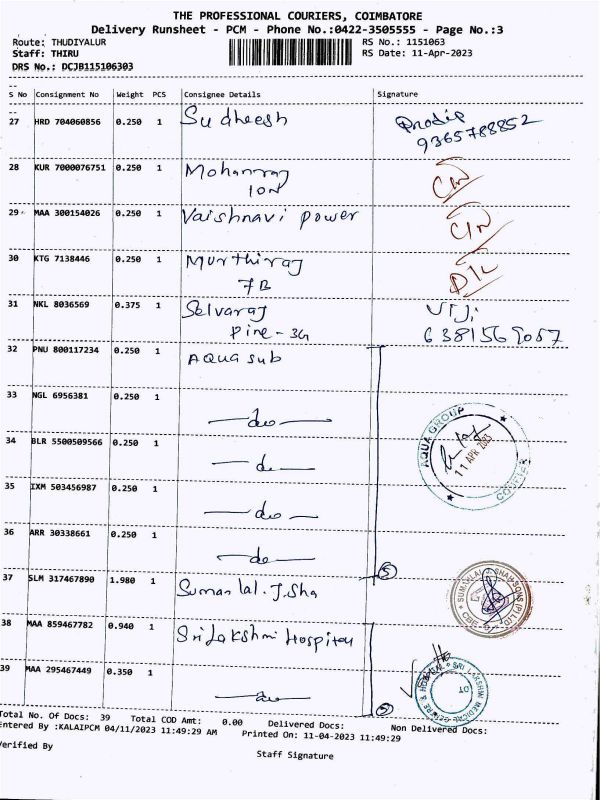 THE PROFESSIONAL COURIERS, COIMBATORE
Delivery Runsheet - PCM - Phone No.:0422-3505555 - Page No.:3
Route: THUDIYALUR RS No.: 1151063
Staff: THIRU RS Date: 11-Apr-2023
DRS No.: DCJB115106303
S No Consignment No Weight PCS Consignee Details Signature
27 HRD 704060856 0.250 1 Sudheesh
9365788852
28 KUR 7000076751 0.250 1 Mohanraj
10N
29 MAA 300154026 0.250 1 Vaishnavi power
30 KTG 7138446 0.250 1 Murthiraj D/L
7B
31 NKL 8036569 0.375 1 Selvaraj Viji
Pine - 3G 6381569057
32 PNU 800117234 0.250 1 Aqua sub
33 NGL 6956381 0.250 1
— do —
34 BLR 5500509566 0.250 1
— do —
35 IXM 503456987 0.250 1
— do —
36 ARR 30338661 0.250 1
— do — 5
AQUA GROUP
11 APR 2023
37 SLM 317467890 1.980 1 Sumanlal. J. Sha
38 MAA 859467782 0.940 1 Sri Lakshmi Hospital
39 MAA 295467449 0.350 1
— do —
Total No. Of Docs: 39 Total COD Amt: 0.00 Delivered Docs: Non Delivered Docs:
Entered By :KALAIPCM 04/11/2023 11:49:29 AM Printed On: 11-04-2023 11:49:29
Verified By
Staff Signature